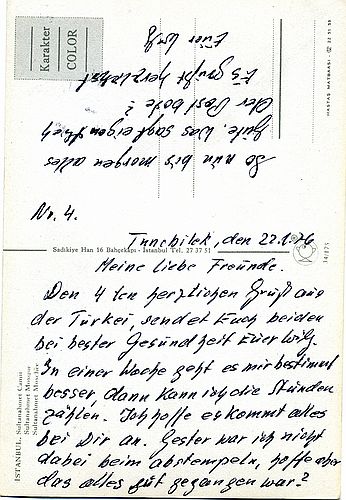 Karakter
COLOR
HASTAŞ MATBAASI: 22 31 55
Nr. 4.
Tuncbilek, den 22.1.76
Sadıkiye Han 16 Bahçekapı - Istanbul Tel. 27 37 51
34/175
Meine liebe Freunde.
Den 4 ten herzlichen Gruß aus
der Türkei, sendet Euch beiden
bei bester Gesundheit Euer Willy.
In einer Woche geht es mir bestimmt
besser, dann kann ich die Stunden
zählen. Ich hoffe es kommt alles
bei Dir an. Gester war ich nicht
dabei beim abstempeln, hoffe aber
das alles gut gegangen war?
So nun bis morgen alles
Gute, was sagt eigentlich
der Post bote?
Es grüßt herzlichst
Euer Willy
ISTANBUL, Sultanahmet Camii
Sultanahmet Mosque
Sultanahmet Moschee